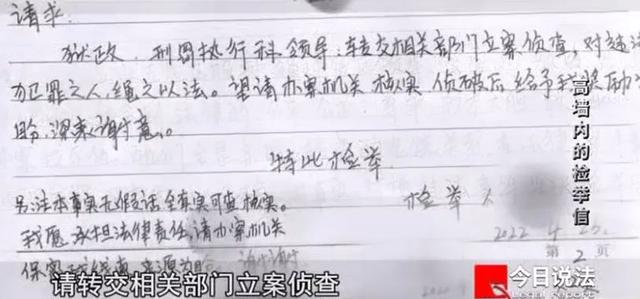 请求:
狱政、刑罚执行科领导:转交相关部门立案侦查,对违法
犯罪之人,绳之以法。望请办案机关核实、侦破后给予我奖励
深表谢意。
特此检举
另:注本事实无作伪证全真实可查核实。
检举人
我愿承担法律责任,请办案机关
2022
第2页
高墙内的检举信
请转交相关部门立案侦查
今日说法